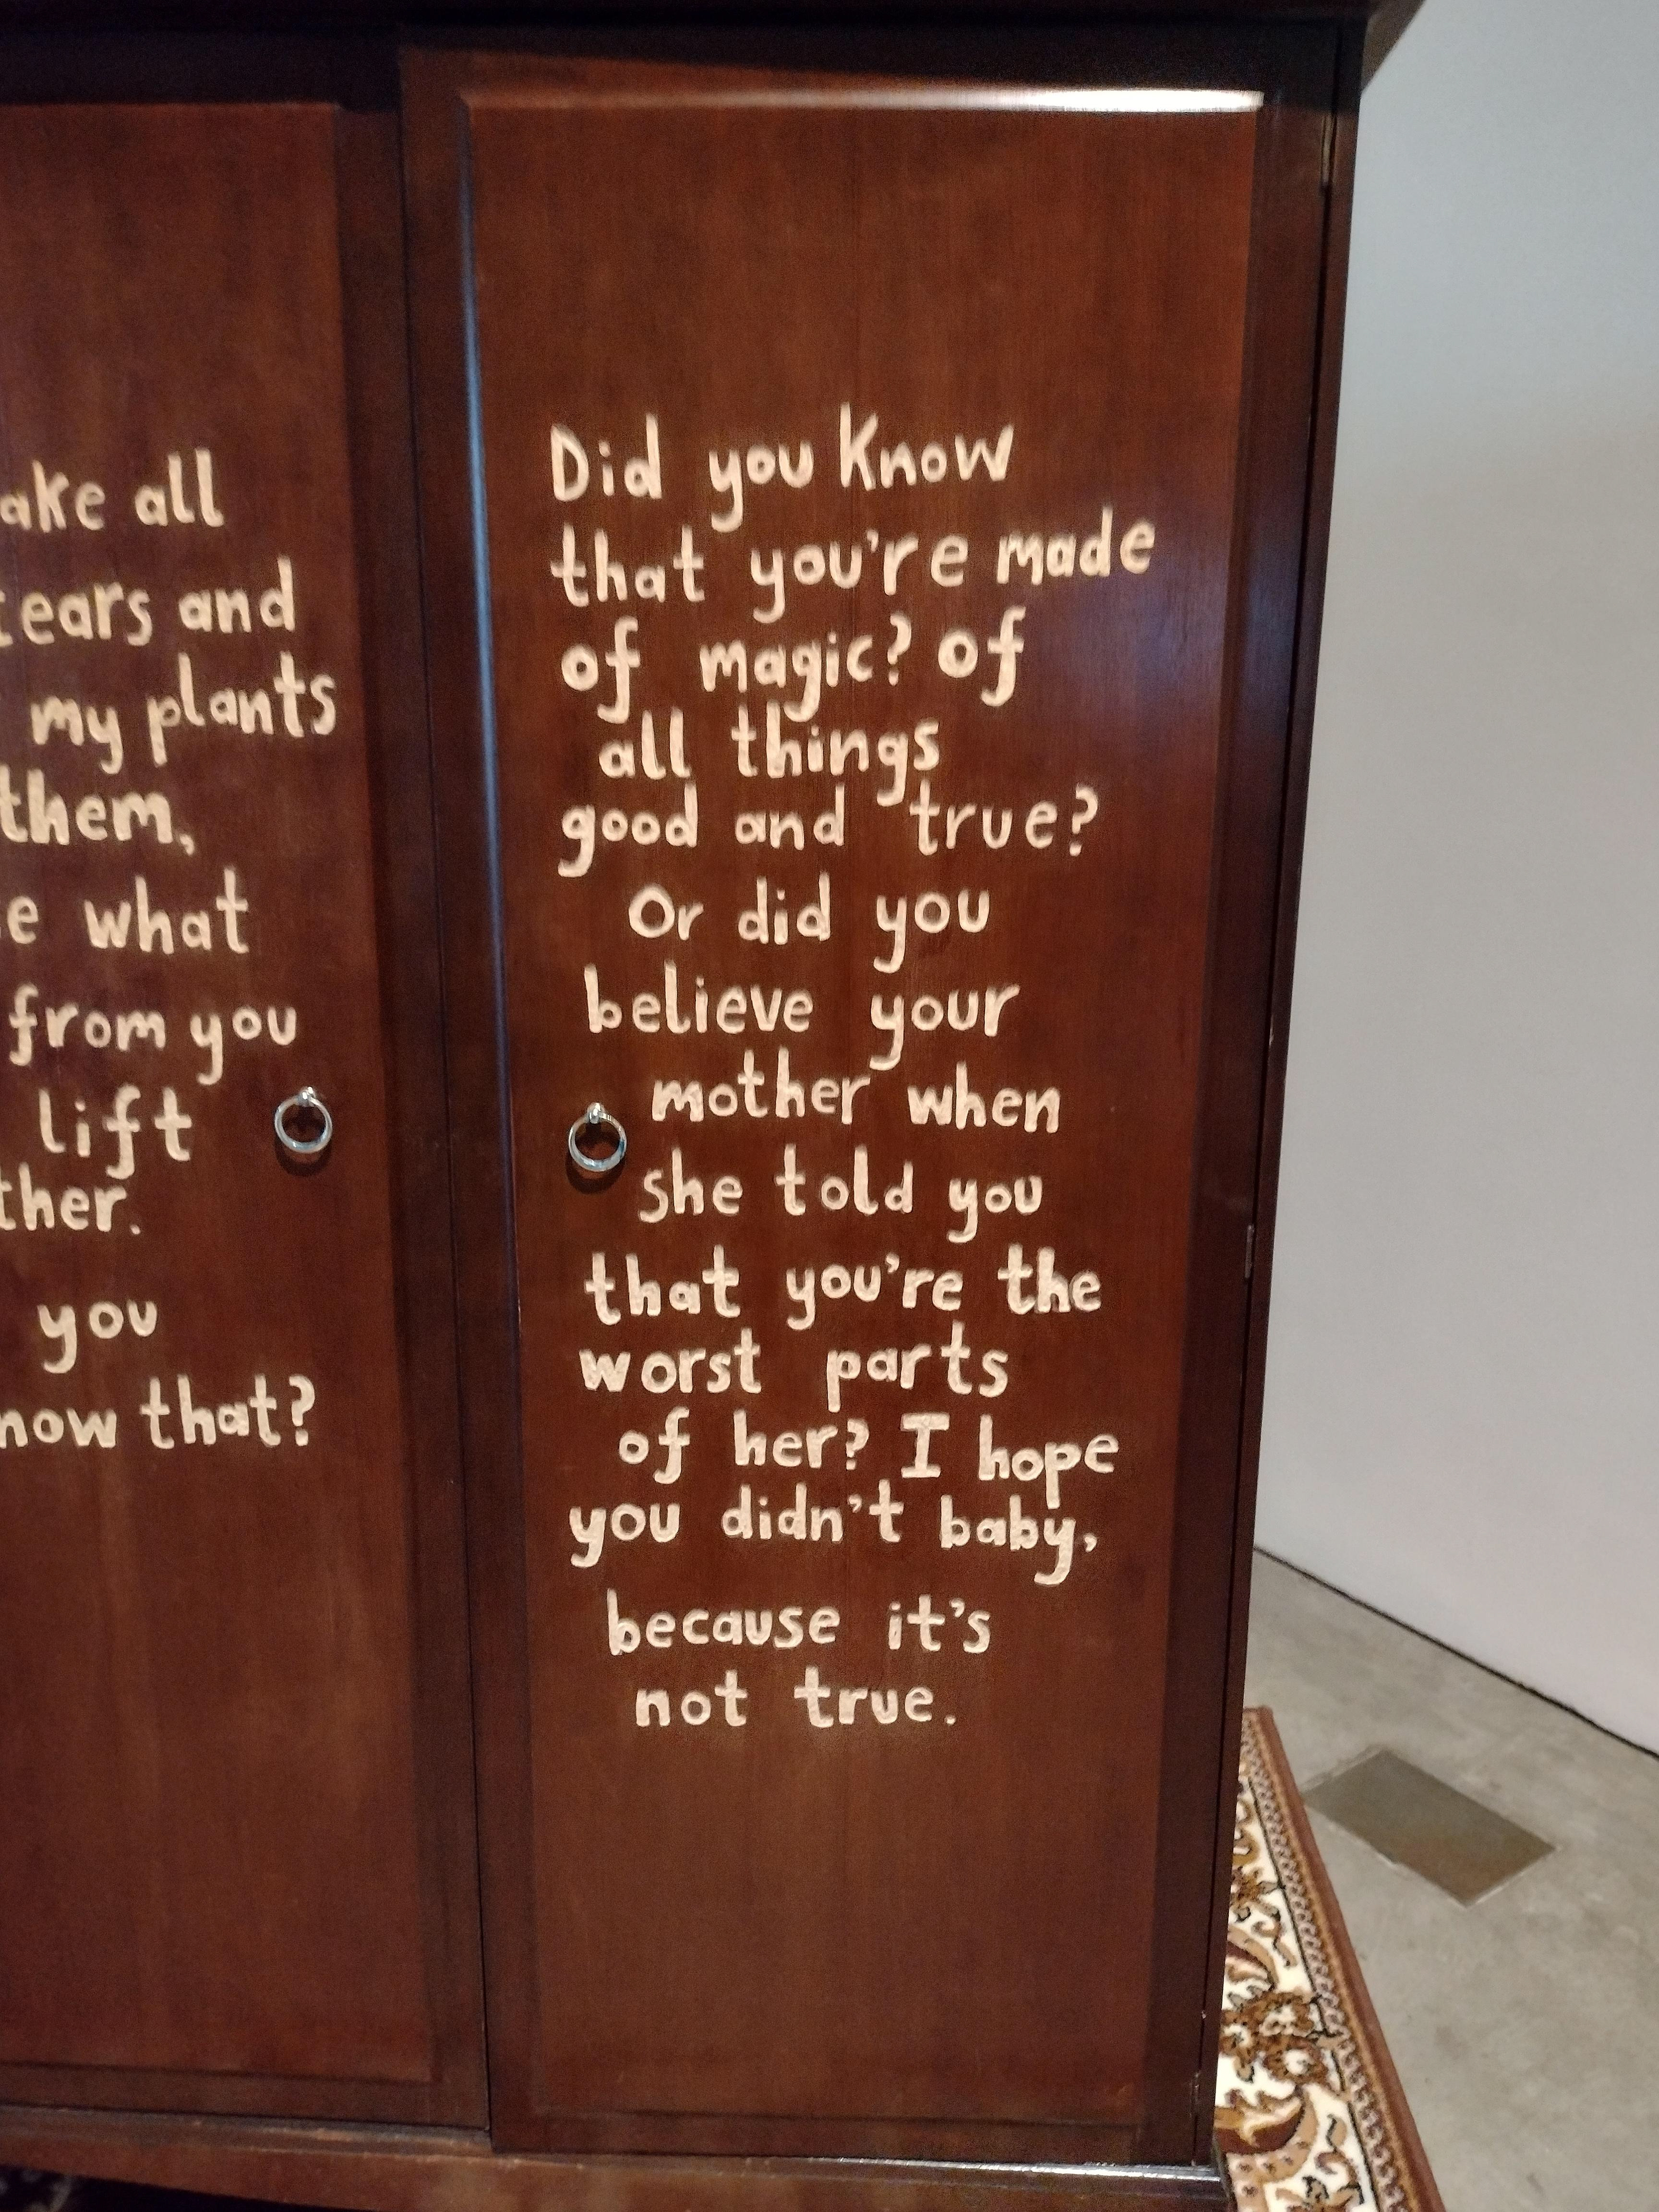 all
and
my plants
them,
what
from you
lift
you
that?
Did you know
that you're made
of magic? of
all things
good and true?
Or did you
believe your
mother when
she told you
that you're the
worst parts
of her? I hope
you didn't baby,
because it's
not true.